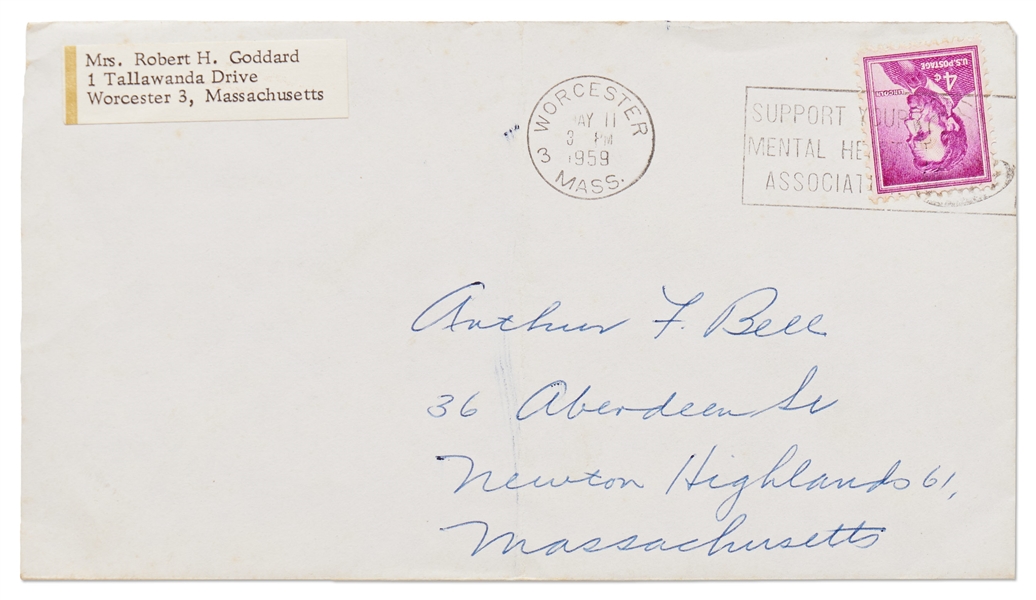 Mrs. Robert H. Goddard
1 Tallawanda Drive
Worcester 3, Massachusetts
WORCESTER
MAY 11
3 PM
1959
3 MASS.
SUPPORT YOUR
MENTAL HEALTH
ASSOCIAT
U.S. POSTAGE
4¢
LINCOLN
Arthur F. Bell
36 Aberdeen St
Newton Highlands 61,
Massachusetts